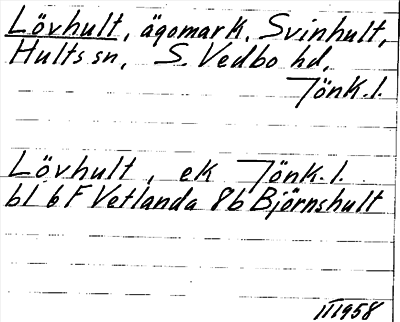 Lövhult, ägomark, Svinhult,
Hults sn, S. Vedbo hd,
Jönk.l.
Lövhult, ek Jönk.l.
bl 6F Vetlanda 8b Björnshult
III1958